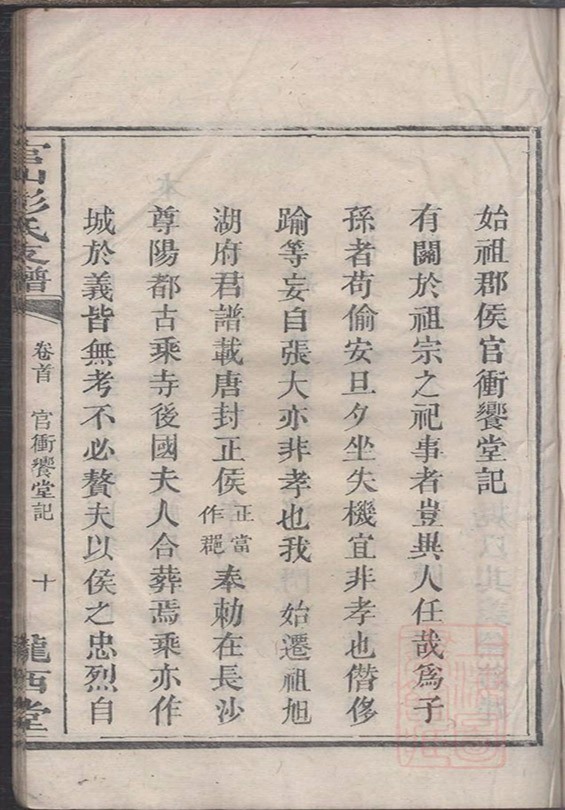 始祖郡侯官衝饗堂記
有關於祖宗之祀事者豈異人任哉爲子
孫者苟偷安旦夕坐失機宜非孝也僭侈
踰等妄自張大亦非孝也我 始遷祖旭
湖府君譜載唐封正侯正當作郡奉勅在長沙
尊陽都古乘寺後國夫人合葬焉乘亦作
城於義皆無考不必贅夫以侯之忠烈自
官山彭氏支譜
卷首 官衝饗堂記 十
龍西堂